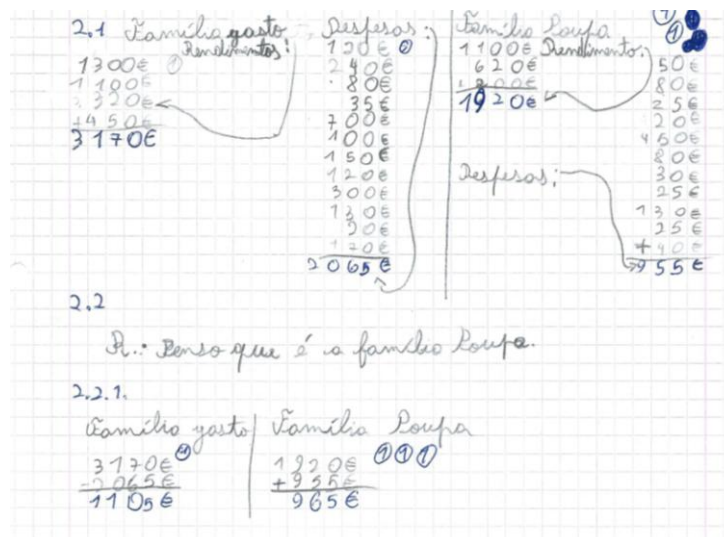 2.1 Família gasto
Rendimentos:
1300€
1100€
320€
+450€
3170€
Despesas:
120€
240€
80€
35€
700€
100€
150€
120€
300€
130€
20€
2065€
Família Poupa
Rendimento:
1100€
620€
200€
1920€
Despesas:
50€
80€
25€
20€
450€
80€
30€
25€
130€
25€
+40€
955€
2.2
R.: Penso que é a família Poupa.
2.2.1.
Família gasto
3170€
-2065€
1105€
Família Poupa
1920€
+955€
965€